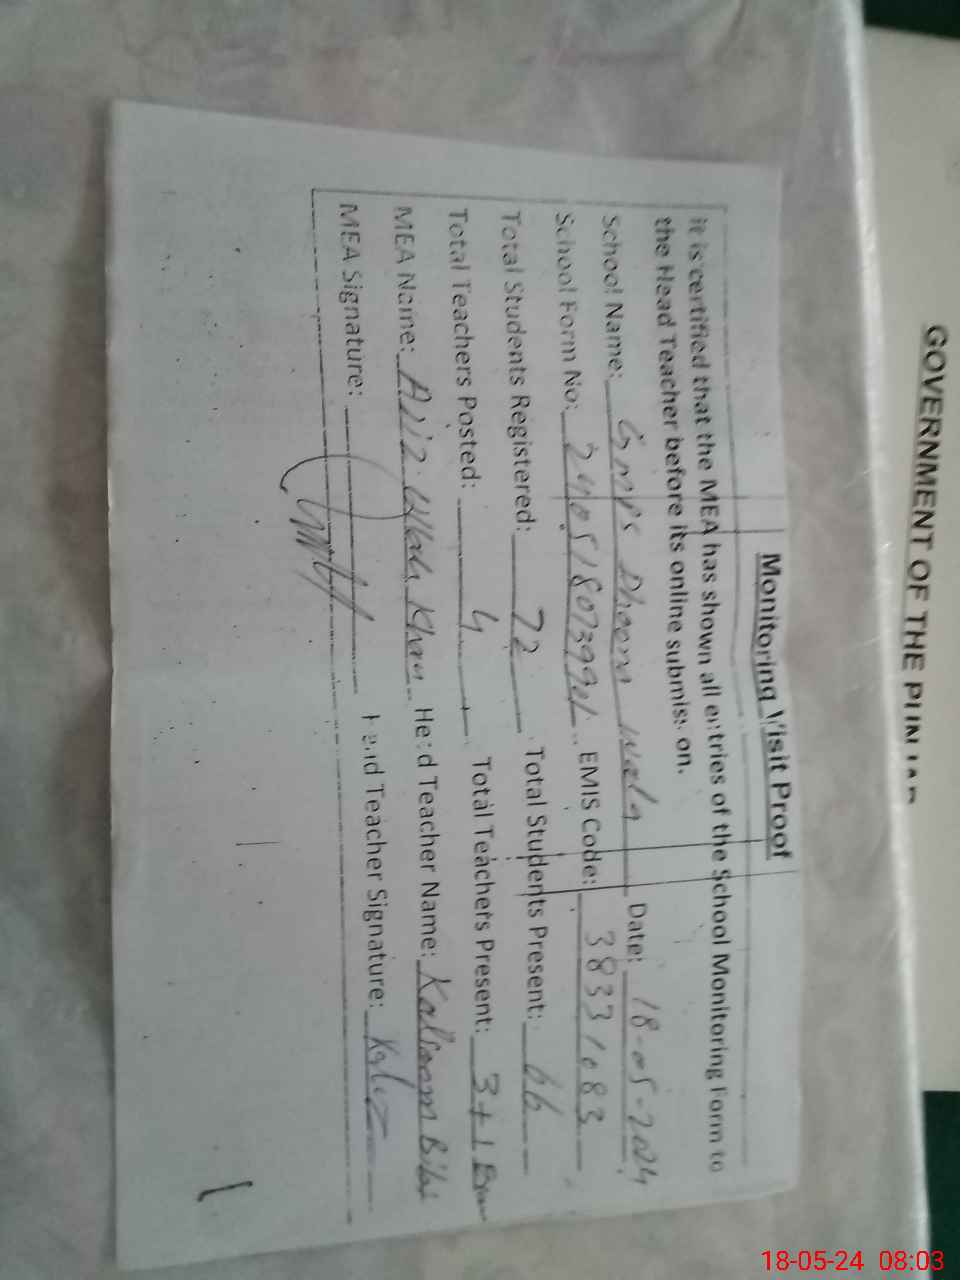 GOVERNMENT OF THE PUNJAB
Monitoring Visit Proof
it is certified that the MEA has shown all entries of the School Monitoring Form to
the Head Teacher before its online submission.
School Name: GMPS Dhoom wala Date: 18-05-2024
School Form No: EMIS Code: 38331083
Total Students Registered: 72 Total Students Present: 66
Total Teachers Posted: 4 Total Teachers Present: 3+1
MEA Name: Aziz Ullah Khan Head Teacher Name: Kalsoom Bibi
MEA Signature: Head Teacher Signature:
18-05-24 08:03